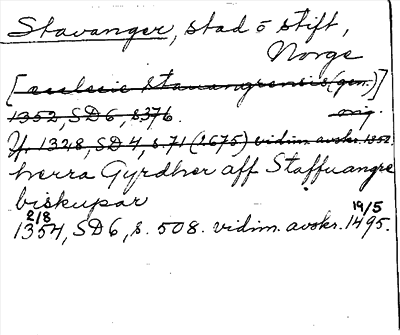 Stavanger, stad o stift,
Norge
[ecclesie Stauangrensis (gen.)]
1352, SD6, s376. orig.
Jfr. 1328, SD4, s.71 (2675) vidim. avskr. 1352.
herra Gyrdher aff Staffuangre
biskupar
2/8 19/5
1354, SD6, s. 508. vidim. avskr. 1495.